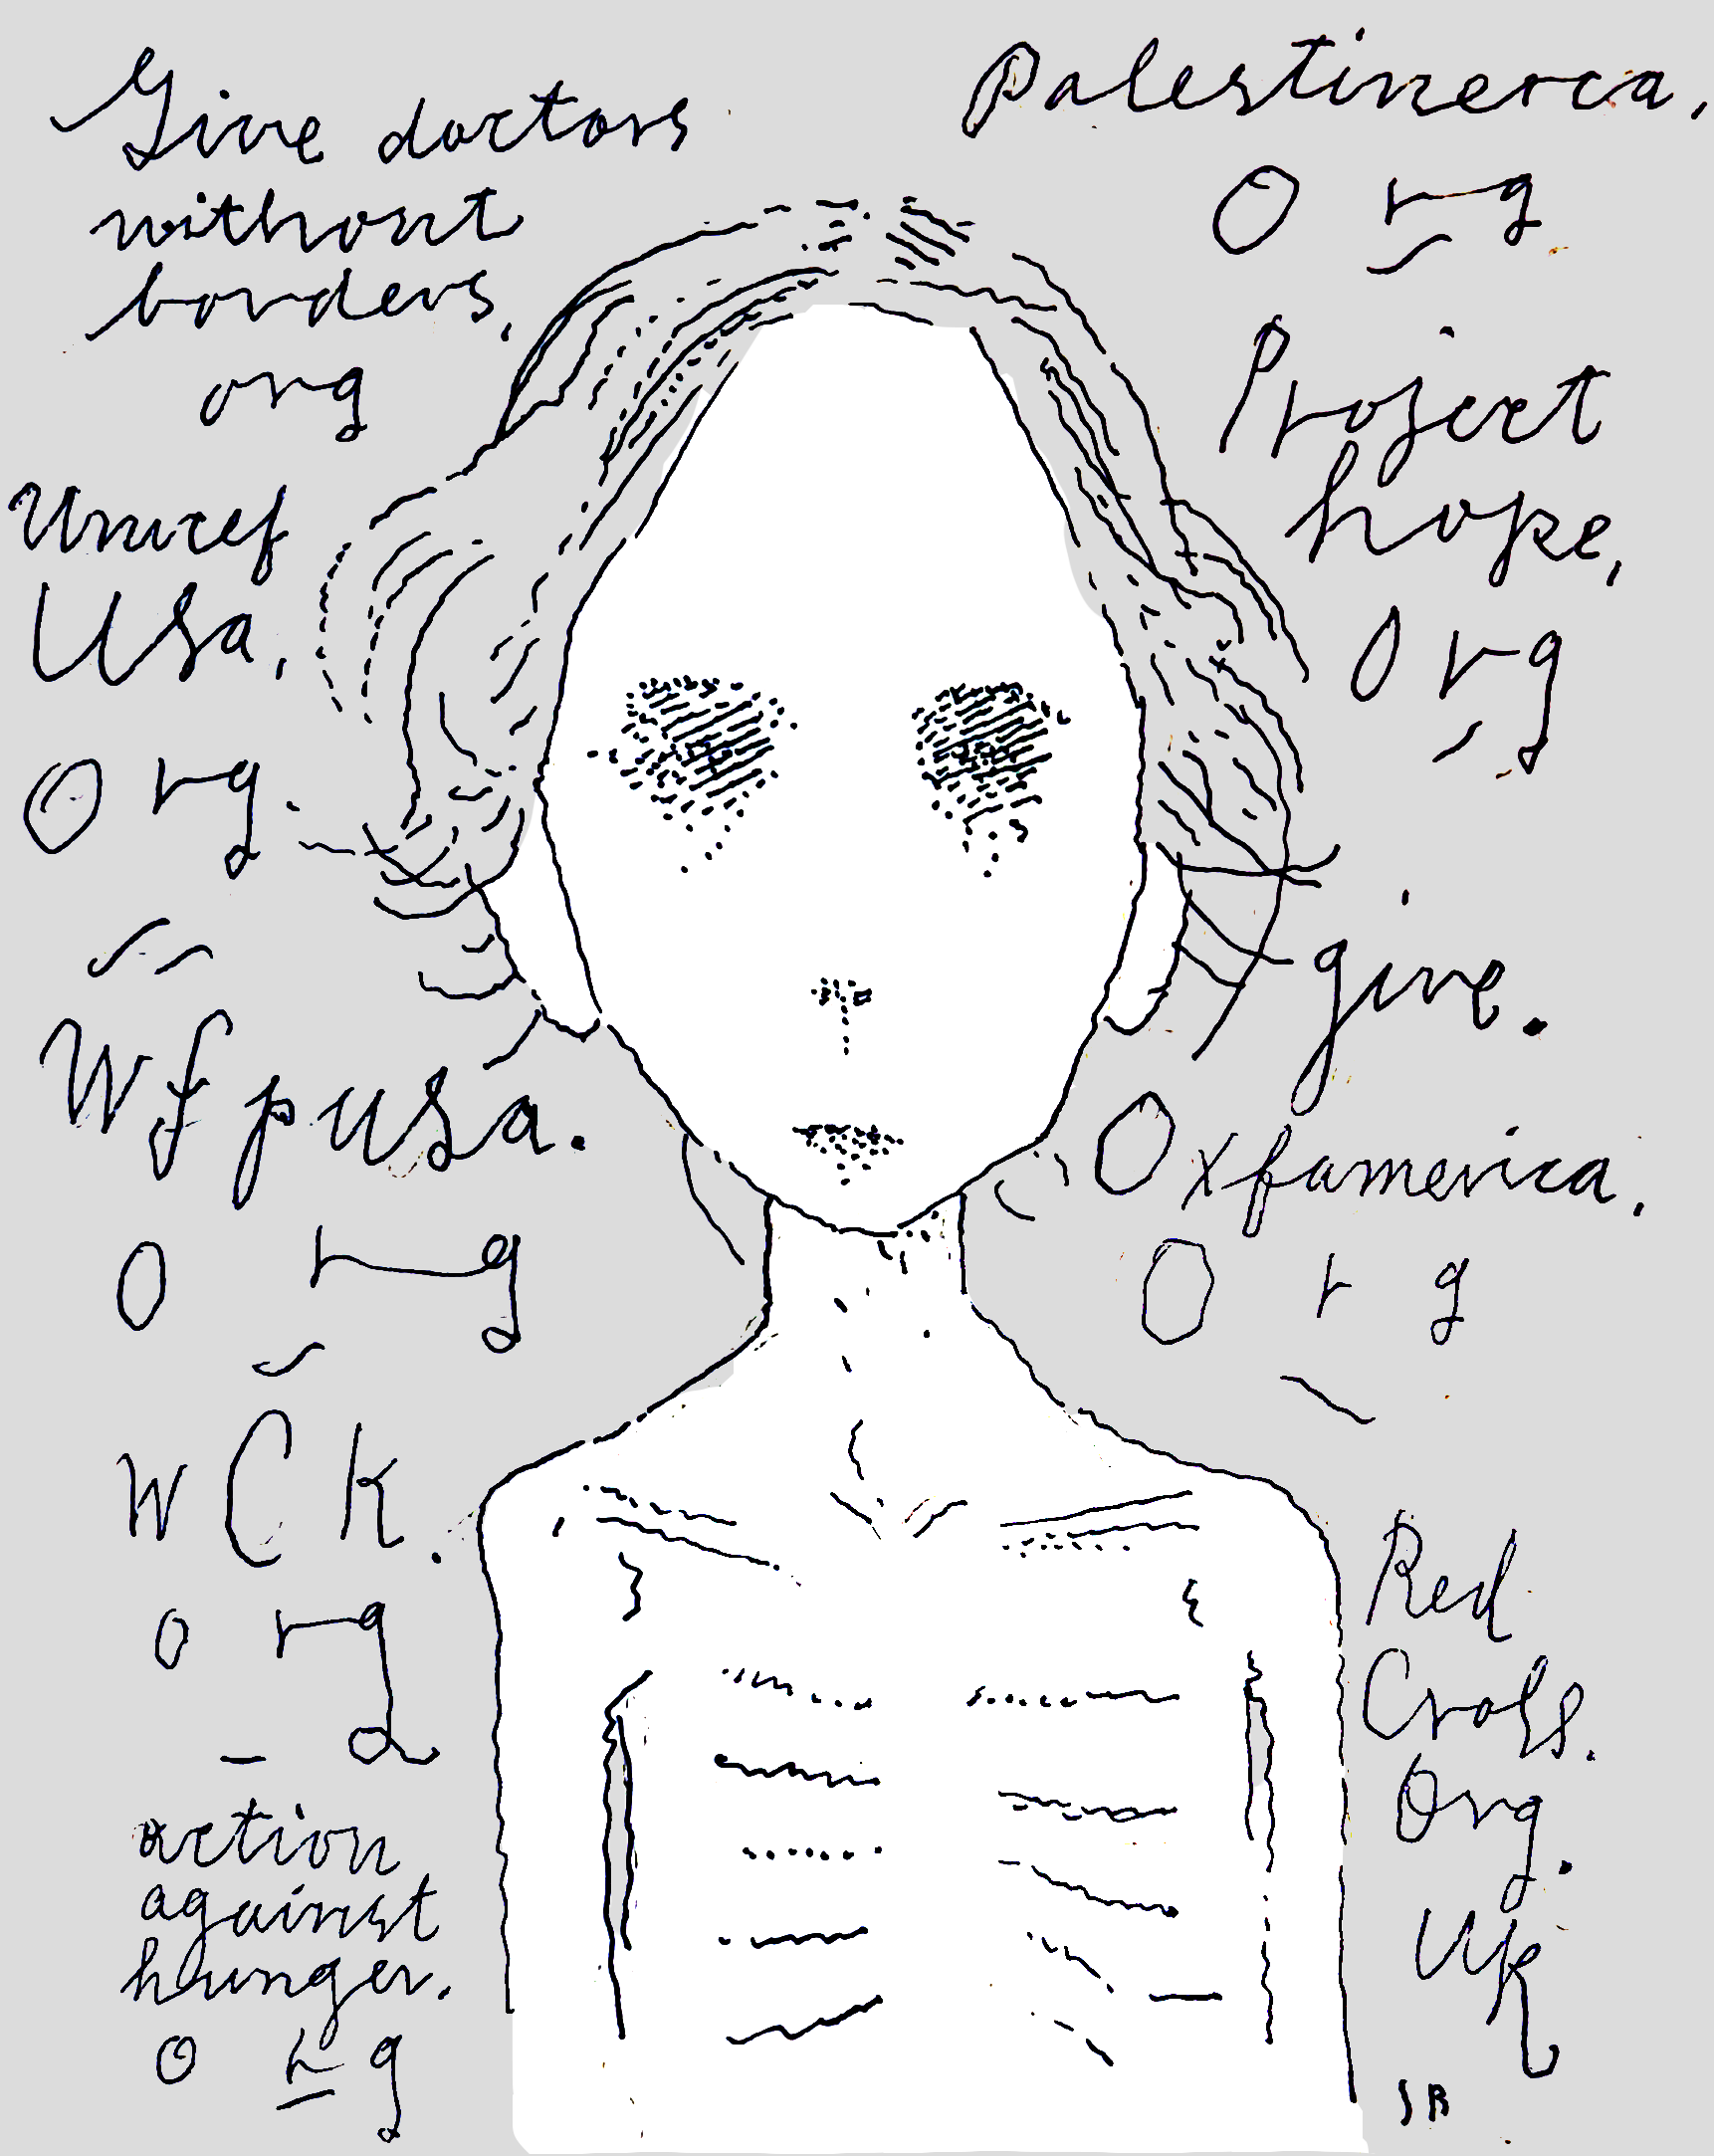 Give doctors
without
borders.
org
Unicef
Usa.
Org.
Wfpusa.
Org
WCK.
org
action
against
hunger.
org
Palestinerca.
Org
Project
hope.
Org
give.
Oxfamerica.
Org
Red
Cross.
Org.
UK
SR